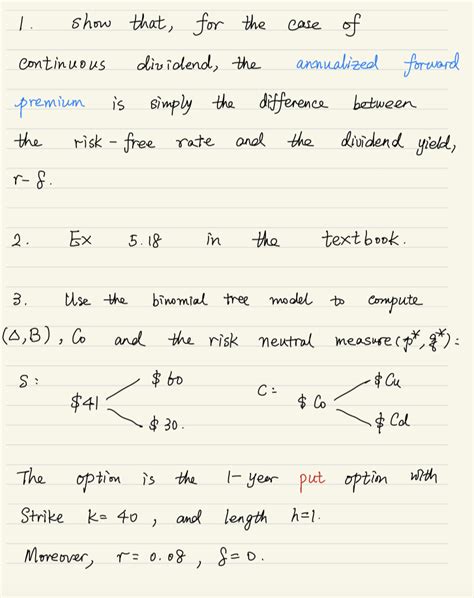 1. Show that, for the case of
continuous dividend, the annualized forward
premium is simply the difference between
the risk-free rate and the dividend yield,
r-δ.
2. Ex 5.18 in the textbook.
3. Use the binomial tree model to compute
(Δ,B), C₀ and the risk neutral measure (p*, q*):
S: $41 $60 $30.
C: $ C₀ $ Cu $ Cd
The option is the 1-year put option with
Strike k=40, and length h=1.
Moreover, r=0.08, δ=0.